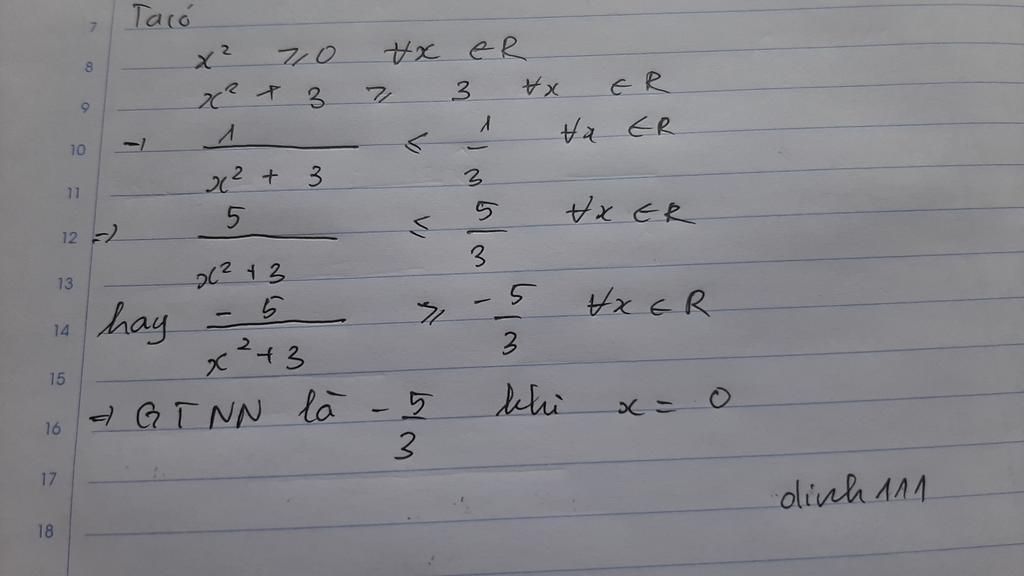 7 Ta có
8 x² ⩾ 0 ∀x ∈ R
9 x² + 3 ⩾ 3 ∀x ∈ R
10 → 1/(x² + 3) ≤ 1/3 ∀x ∈ R
11
12 => 5/(x² + 3) ≤ 5/3 ∀x ∈ R
13
14 hay -5/(x² + 3) ⩾ -5/3 ∀x ∈ R
15
16 => GTNN là -5/3 khi x = 0
17
dinh111
18